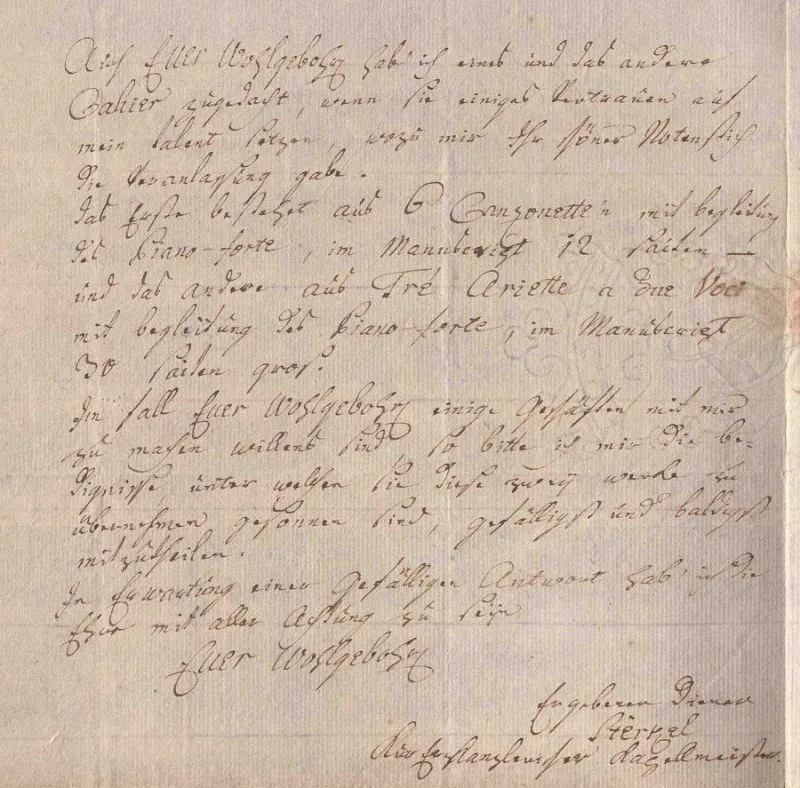 Auch Euer Wohlgebohrn hab' ich eines und das andere
Cahier zugedacht, wenn sie einiges Vertrauen auf
mein talent setzen, wozu mir Ihr schöner Notenstich
die Veranlassung gabe.
das Erste bestehet aus 6 Canzonette'n mit begleitung
des Piano-forte, im Manuscript 12 saiten —
und das andere aus Tré Ariette a due Voci
mit begleitung des Piano-forte, im Manuscript
30 saiten gros.
Im fall Euer Wohlgebohrn einige Geschäften mit mir
zu machen willens sind, so bitte ich mir die be-
dignisse, unter welchen sie diese zwey werke zu
übernehmen gesonnen sind, gefälligst und baldigst
mitzutheilen.
In Erwartung einer Gefälligen Antwort hab' ich die
Ehre mit aller Achtung zu sein
Euer Wohlgebohrn
Ergebener Diener
Sterkel
Kur Erzkanzlerischer Kapellmeister.